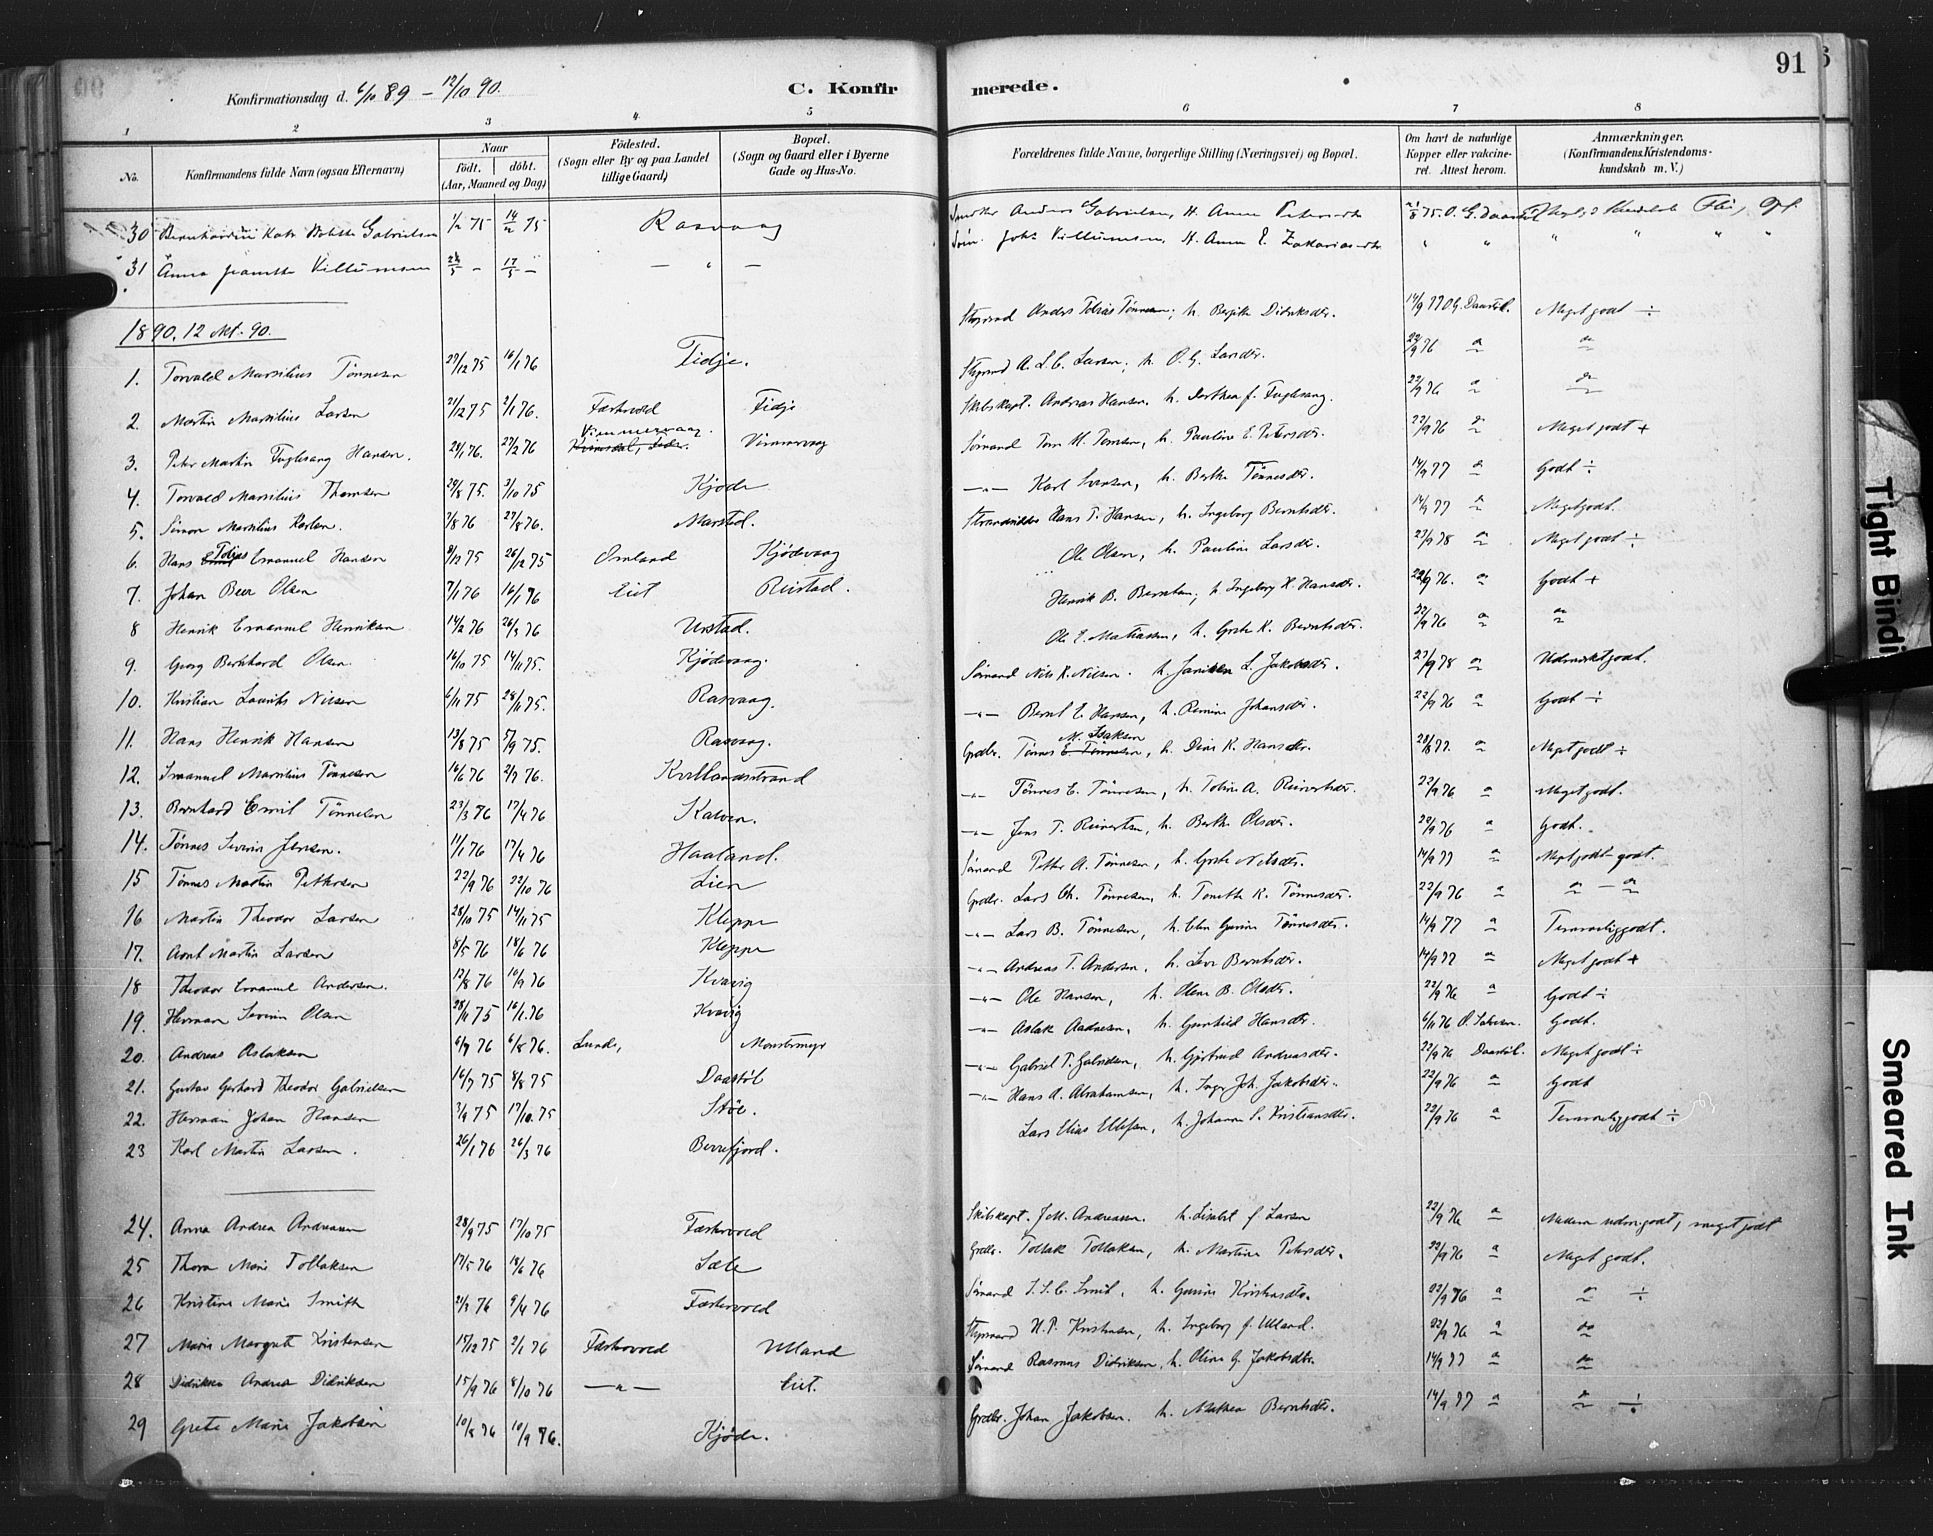 91
Konfirmationsdag d. 6/10 89 – 12/10 90.
C. Konfir
merede.
1 2 3 4 5 6 7 8
No.
Konfirmandens fulde Navn (ogsaa Efternavn)
Naar
födt. döbt.
(Aar, Maaned og Dag)
Födested.
(Sogn eller By og paa Landet
tillige Gaard)
Bopæl.
(Sogn og Gaard eller i Byerne
Gade og Hus-No.
Forældrenes fulde Navne, borgerlige Stilling (Næringsvei) og Bopæl.
Om havt de naturlige
Kopper eller vakcine-
ret. Attest herom.
Anmærkninger.
(Konfirmandens Kristendoms-
kundskab m. V.)
30 Gabrielsen 1/2 75 14/2 75 Rasvaag Anders Gabrielsen, H. Anna
31 Anna Villumsen 24/5 – 17/5 – – " – Villumsen, H. Anna E. Zakariasdtr
1890, 12 Okt. 90.
1. Torvald Marsilius Tönnesen 27/12 75 16/1 76 Tidje. Styrmd Anders Tobias Tönnesen, h. Berjitte Didriksdr. 14/9 77 O.G. Daastöl. Meget godt ÷
2. Martin Marsilius Larsen 21/12 75 2/1 76. Farhvold Tidje Styrmd A. L. C. Larsen, h. O. G. Larsdr. 22/9 76
3. Peter Martin Fuglesang Hansen. 24/1 76. 27/2 76 Vimmervaag. Vimmervaag Skibskapt. Andreas Hansen, h. Dorthea f. Fuglesang. 22/9 76
4. Torvald Marsilius Thomsen 29/8 75. 3/10 75 Kjöde Sömand Tom M. Tomsen, h. Pauline E. Petersdr. 22/9 76 Meget godt +
5. Simon Marsilius Karlsen. 7/8 76 27/8 76. Marstol. – " – Karl Svensen, h. Berthe Tönnesdr. 14/9 77 Godt ÷
6. Hans Tobias Emanuel Hansen 9/12 75 26/12 75 Omland Kjödevaag Hans T. Hansen, h. Ingeborg Berntsdr. 14/9 77 Meget godt.
7. Johan Beer Olsen 7/1 76 16/1 76 Eiet Rustad. Ole Olsen, h. Pauline Larsdr. 27/9 78 Meget godt ÷
8 Henrik Emanuel Henriksen 14/2 76 26/3 76 Urstad. Henrik B. Berntsen, h. Ingeborg H. Hansdr. 22/9 76. Godt +
9. Georg Bernhard Olsen. 16/10 75 14/11 75. Kjödevaag. Ole E. Mathiassen, h. Grete K. Berntsdr. 22/9 76
10. Kristian Lauritz Nilsen 6/11 75 28/11 75. Rasvaag. Sömand Nils R. Nilsen. h. L. Jakobsdr 27/9 78 Udmærket godt.
11. Hans Henrik Hansen 13/8 75 5/9 75. Rasvaag. – " – Bernt E. Hansen, h. Johansdr. 22/9 76 Godt ÷
12. Emanuel Marsilius Tönnesen 16/6 76 2/7 76. Kvillandsstrand Grdbr. Tönnes M. Isaksen, h. Dine K. Hansdtr. Meget godt ÷
13. Bernhard Emil Tönnesen 23/3 76 17/4 76 Kalven. – " – Tönnes E. Tönnesen, h. Tobine A. Reinertsdr. 22/9 76 Meget godt.
14. Tönnes Severin Jensen. 11/1 76 17/4 76 Haaland. – " – Jens T. Reinertsen, h. Berthe Olsdr. 22/9 76 Godt.
15 Tönnes Martin Pettersen 22/9 76 22/10 76 Lien Sömand Petter A. Tönnesen, h. Grete Nilsdr. 14/9 77 Meget godt – godt.
16 Martin Theodor Larsen 28/10 75 14/11 75 Kleppe Grdbr. Lars Ch. Tönnesen, h. Tonette K. Tönnesdr. 22/9 76
17. Aont Martin Larsen 8/5 76 18/6 76 Kleppe – " – Lars B. Tönnesen, h. Elen Gurine Tönnesdr. 14/9 77 Temmelig godt.
18 Theodor Emanuel Andersen. 12/8 76 10/9 76 Kvavig – " – Andreas T. Andersen, h. Berntsdr. 14/9 77 Meget godt +
19. Herman Severin Olsen 28/11 75 16/1 76 Kvavig – " – Ole Hansen, h. Olene B. Olsdr. 22/9 76 Godt ÷
20. Andreas Aslaksen 6/7 76 6/8 76. Lunde, Monstermyr – " – Aslak Aadnesen, h. Gunhild Hansdtr. 6/11 76 Godt.
21. Gustav Gerhard Theodor Gabrielsen 16/7 75 8/8 75 Daastöl – " – Gabriel T. Gabrielsen, h. Gjertrud Andreasdr. 22/9 76 Daastöl. Meget godt ÷
22. Herman Johan Hansen 7/9 75 17/10 75 Stöl. – " – Hans A. Abrahamsen, h. Inger Joh. Jakobsdr. 22/9 76 Godt
23 Karl Martin Larsen. 26/1 76 26/3 76 Berrefjord. Lars Elias Ellefsen, h. Johanne S. Kristiansdtr. 22/9 76 Temmelig godt ÷
24. Anna Andrea Andreassen 28/9 75 17/10 75 Farhvold Skibskapt. J. M. Andreassen. h. Lisabet f. Larsen 22/9 76 meget godt
25 Thora Marie Tollaksen 17/5 76 18/6 76 Sæle Grdbr. Tollak Tollaksen, h. Martine Petersdr. 22/9 76 Meget godt.
26 Kristine Marie Smith 21/3 76 9/4 76 Farhvold Sömand S. C. Smit, h. Gurine Kristensdtr. 22/9 76 ÷
27 Marie Margrete Kristensen 15/12 75 2/1 76 Farhvold Ulland Styrmand H. P. Kristensen, h. Ingeborg f. Ulland. 22/9 76
28 Didrikke Andrea Didriksen 15/9 76 8/10 76 – " – Eiet. Sömand Rasmus Didriksen, h. Oline G. Jakobsdtr. 14/9 77
29 Grete Marie Jakobsen 10/8 76 10/9 76. Kjöde. Grdbr. Johan Jakobsen. h. Mathea Berntsdtr. 14/9 77 ÷
Tight Bindi
Smeared Ink